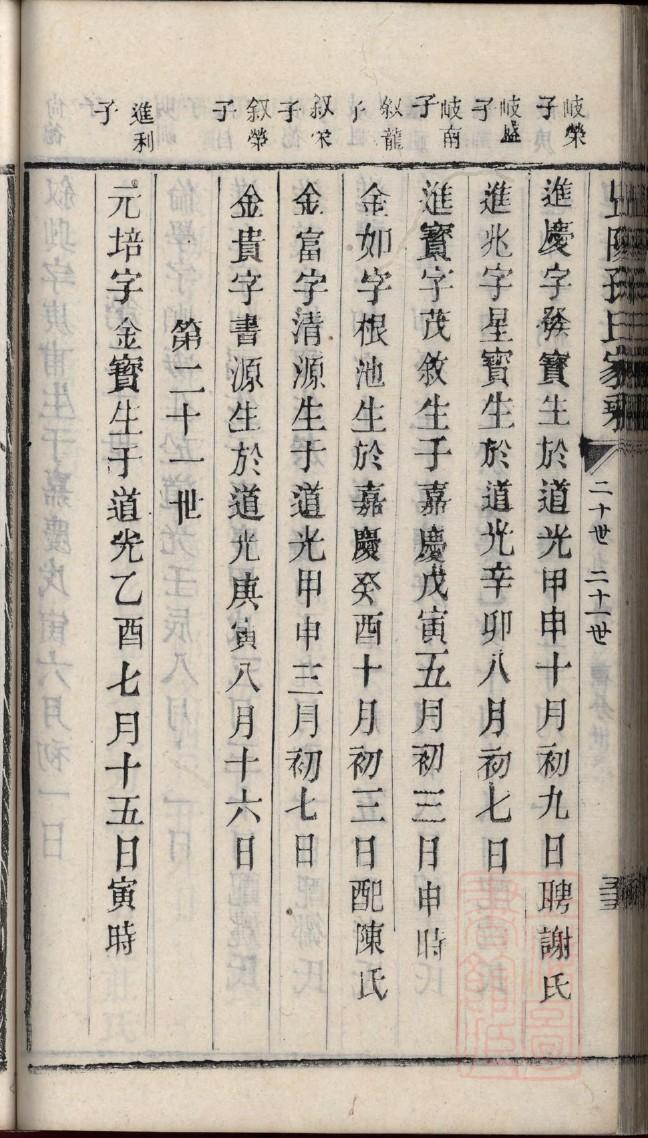 孫氏家乘
二十世 二十一世
岐榮子
進慶字發寶生於道光甲申十月初九日聘謝氏
岐盛子
進兆字星寶生於道光辛卯八月初七日
岐南子
進寳字茂敘生于嘉慶戊寅五月初三日申時
叙龍子
金如字根池生於嘉慶癸酉十月初三日配陳氏
叙荣子
金富字清源生于道光甲申三月初七日
叙榮子
金貴字書源生於道光庚寅八月十六日
第二十一世
進利子
元培字金寶生于道光乙酉七月十五日寅時